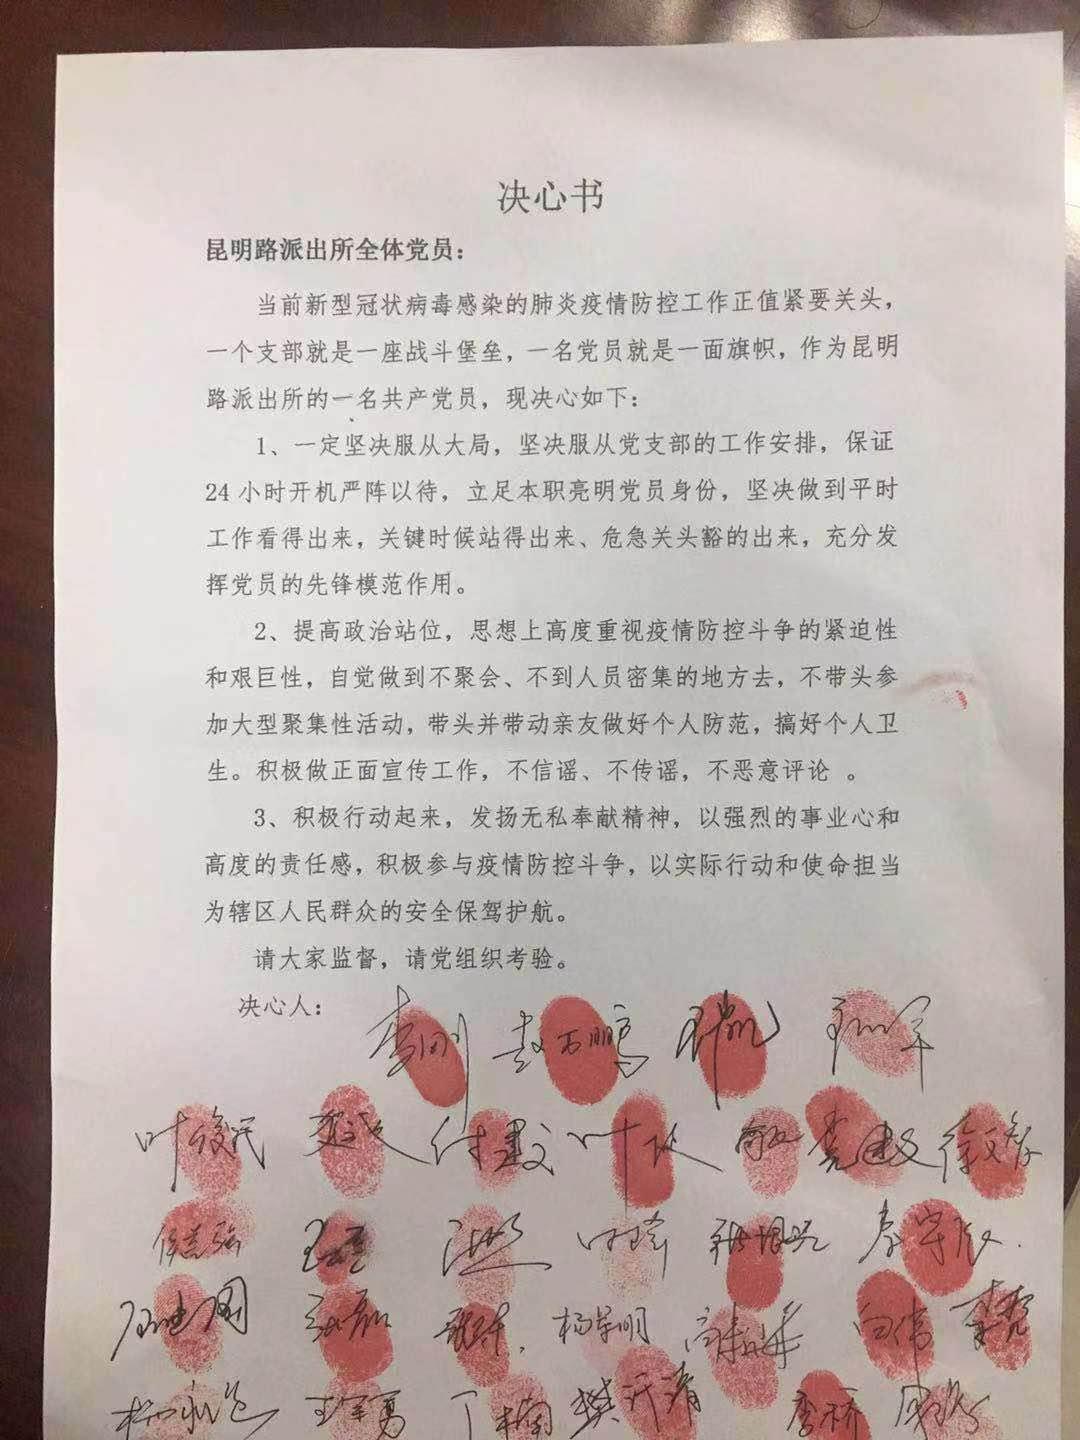 决心书
昆明路派出所全体党员：
当前新型冠状病毒感染的肺炎疫情防控工作正值紧要关头，
一个支部就是一座战斗堡垒，一名党员就是一面旗帜，作为昆明
路派出所的一名共产党员，现决心如下：
1、一定坚决服从大局，坚决服从党支部的工作安排，保证
24小时开机严阵以待，立足本职亮明党员身份，坚决做到平时
工作看得出来，关键时候站得出来、危急关头豁的出来，充分发
挥党员的先锋模范作用。
2、提高政治站位，思想上高度重视疫情防控斗争的紧迫性
和艰巨性，自觉做到不聚会、不到人员密集的地方去，不带头参
加大型聚集性活动，带头并带动亲友做好个人防范，搞好个人卫
生。积极做正面宣传工作，不信谣、不传谣，不恶意评论 。
3、积极行动起来，发扬无私奉献精神，以强烈的事业心和
高度的责任感，积极参与疫情防控斗争，以实际行动和使命担当
为辖区人民群众的安全保驾护航。
请大家监督，请党组织考验。
决心人： 李刚 赵万鹏
叶俊民
杨军明 白伟
王军勇 丁楠 樊沂清 李桥